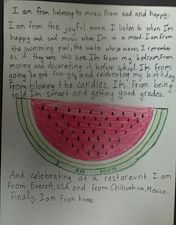 I am from listening to music from sad and happy.
I am from the joyful music I listen to when I'm
happy and sad music when I'm in a mad. I am from
the swimming pool, the water whose waves I remember
as if they were still here. I'm from my bedroom. From
moving and decorating it before school. I'm from
going to get and celebrating my birthday
From blowing the candles. I'm from being
told I'm smart and getting good grades.
I AM FROM
And celebrating at a restaraunt. I am
from Everett, USA and from Chihuahua, Mexico.
Finally, I am from home.